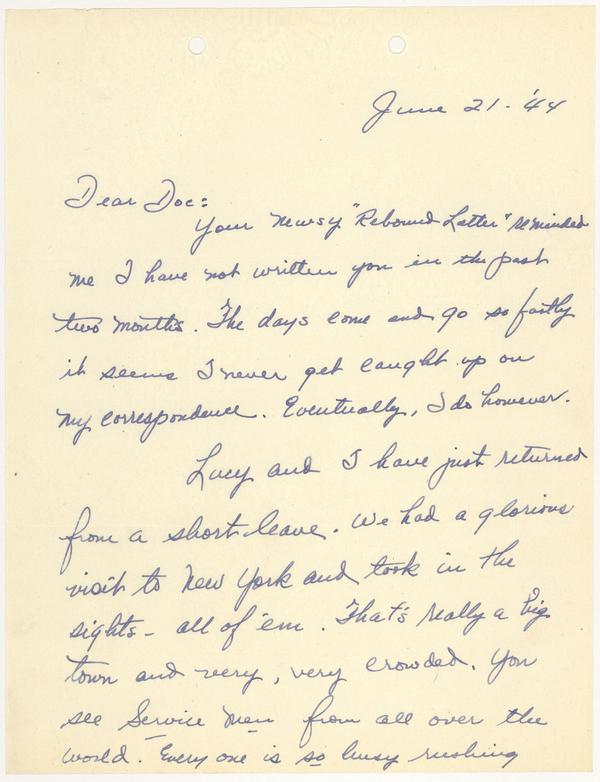 June 21 - '44
Dear Doc:
Your newsy "Rebound Letter" reminded
me I have not written you in the past
two months. The days come and go so fastly
it seems I never get caught up on
my correspondence. Eventually, I do however.
Lucy and I have just returned
from a short leave. We had a glorious
visit to New York and took in the
sights - all of 'em. That's really a big
town and very, very crowded. You
see Service Men from all over the
world. Every one is so busy rushing